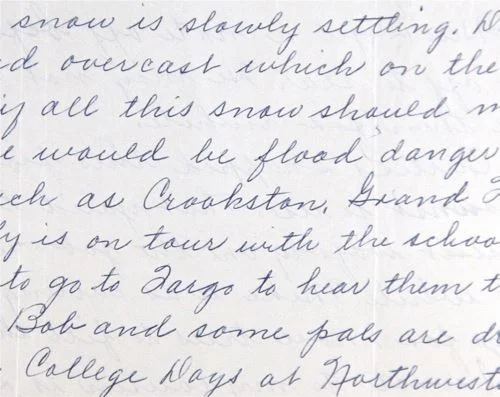 snow is slowly settling. D
d overcast which on the
if all this snow should m
e would be flood danger
ch as Crookston, Grand F
y is on tour with the schoo
to go to Fargo to hear them t
Bob and some pals are dr
College Days at Northwest